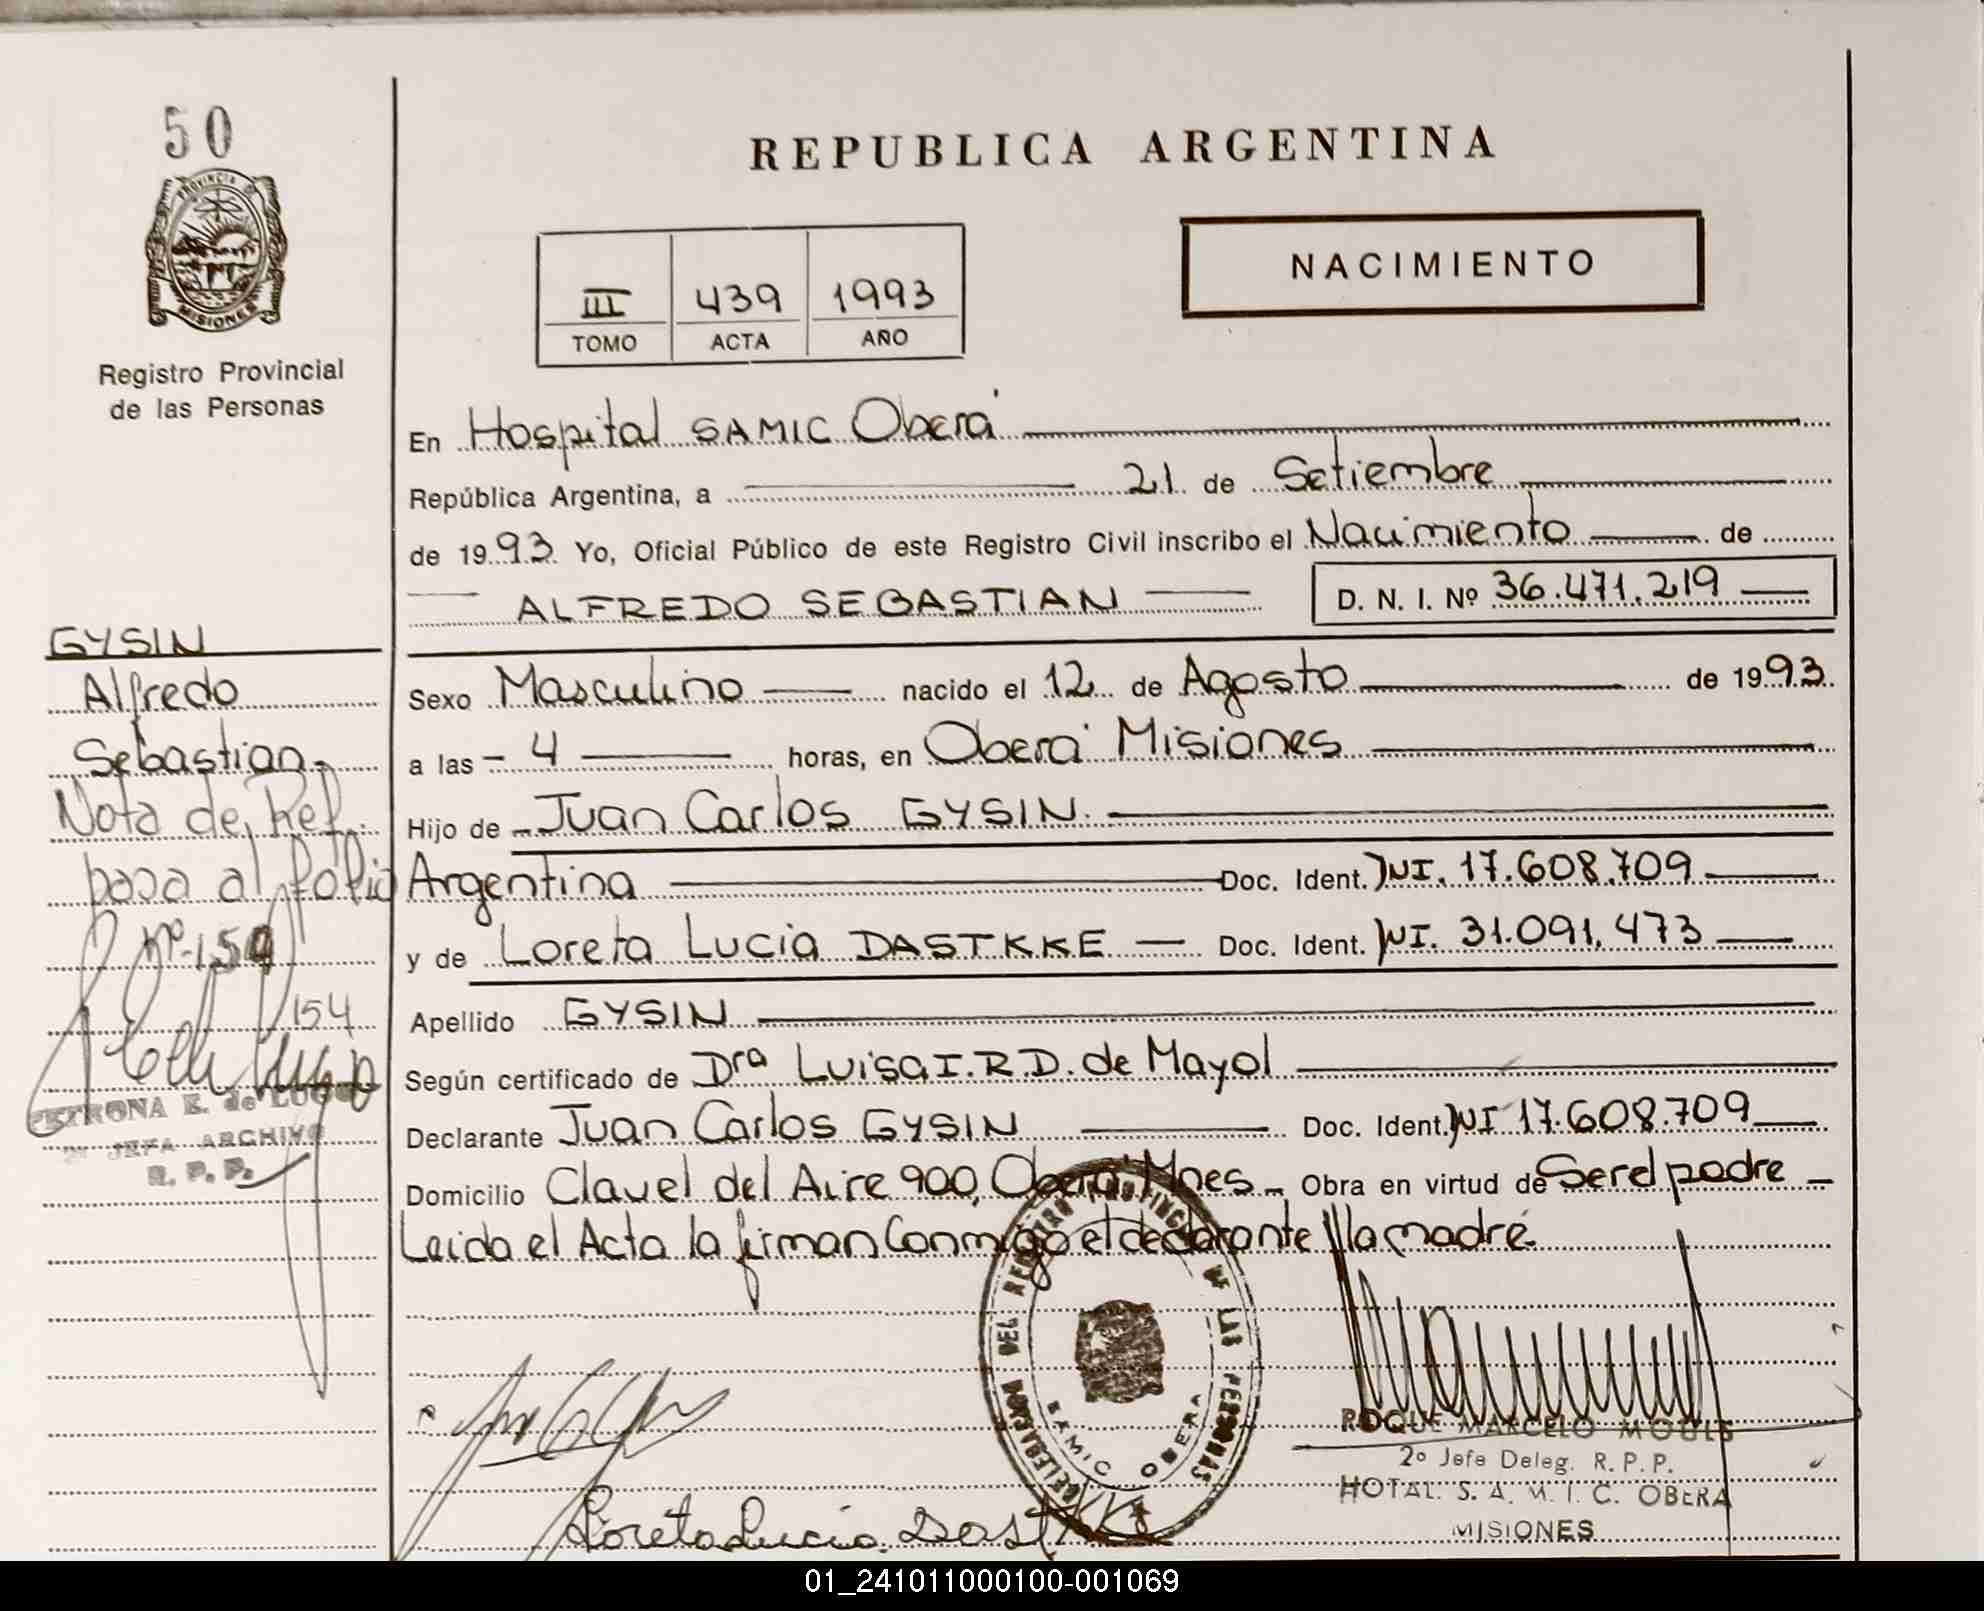 50
PROVINCIA DE
MISIONES
Registro Provincial
de las Personas
GYSIN
Alfredo
Sebastian
Nota de Ref.
pasa al folio
Nº 159
154
PETRONA E. de LUGO
JEFA ARCHIVO
R. P. P.
REPUBLICA ARGENTINA
III 439 1993
TOMO ACTA AÑO
NACIMIENTO
En Hospital SAMIC Oberá
República Argentina, a 21 de Setiembre
de 1993 Yo, Oficial Público de este Registro Civil inscribo el Nacimiento de
ALFREDO SEBASTIAN D. N. I. Nº 36.471.219
Sexo Masculino nacido el 12 de Agosto de 1993
a las 4 horas, en Oberá Misiones
Hijo de Juan Carlos GYSIN
Argentina Doc. Ident. DNI. 17.608.709
y de Loreta Lucia DASTKKE Doc. Ident. DNI. 31.091.473
Apellido GYSIN
Según certificado de Dra Luisa I.R.D. de Mayol
Declarante Juan Carlos GYSIN Doc. Ident. DNI 17.608.709
Domicilio Clavel del Aire 900, Oberá Mnes Obra en virtud de Ser el padre
Leida el Acta la firman Conmigo el declarante y la madre
DELEGACION DEL REGISTRO PROVINCIAL DE LAS PERSONAS
SAMIC OBERA
ROQUE MARCELO MOULS
2º Jefe Deleg. R. P. P.
HOTAL. S. A. M. I. C. OBERA
MISIONES
Loreta Lucia Dastkke
01_241011000100-001069